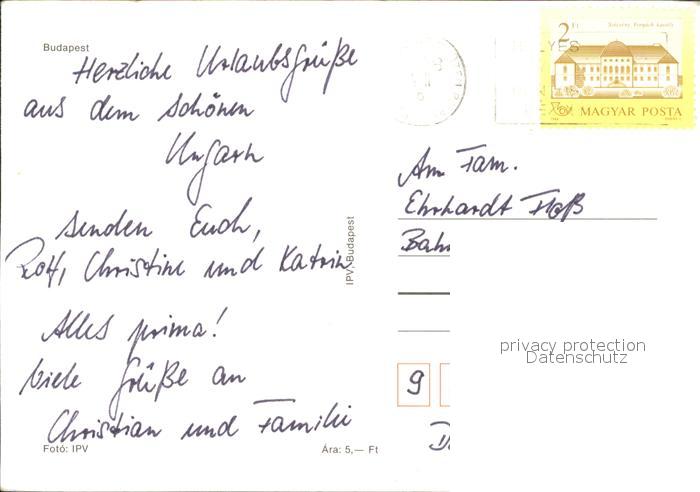 Budapest
Herzliche Urlaubsgrüße
aus dem schönen
Ungarn
senden Euch,
Rolf, Christine und Katrin
Alles prima!
Viele Grüße an
Christian und Familie
Fotó: IPV
Ára: 5,— Ft
IPV, Budapest
2 Ft
MAGYAR POSTA
An Fam.
Ehrhardt Floß
Bahn
privacy protection
Datenschutz
9
D